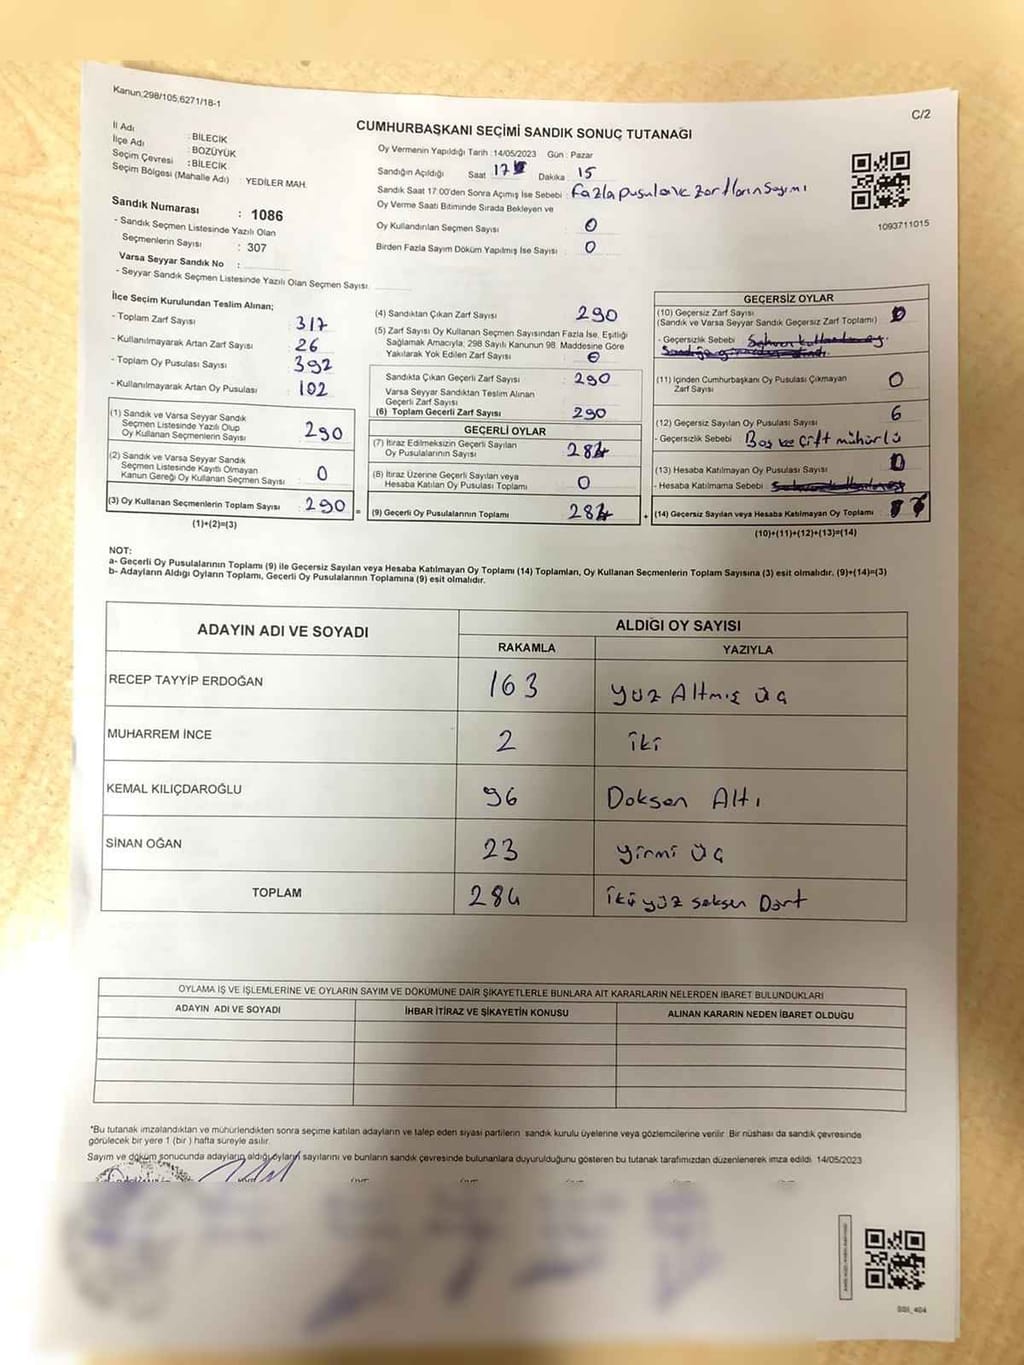 Kanun;298/105;6271/18-1
C/2
CUMHURBAŞKANI SEÇİMİ SANDIK SONUÇ TUTANAĞI
İl Adı : BİLECİK
İlçe Adı : BOZÜYÜK
Seçim Çevresi : BİLECİK
Seçim Bölgesi (Mahalle Adı) : YEDİLER MAH.
Sandık Numarası : 1086
- Sandık Seçmen Listesinde Yazılı Olan
Seçmenlerin Sayısı : 307
Varsa Seyyar Sandık No :
- Seyyar Sandık Seçmen Listesinde Yazılı Olan Seçmen Sayısı
Oy Vermenin Yapıldığı Tarih :14/05/2023 Gün : Pazar
Sandığın Açıldığı Saat 17 Dakika 15
Sandık Saat 17:00'den Sonra Açımış İse Sebebi : Fazla pusula ve zarfların sayımı
Oy Verme Saati Bitiminde Sırada Bekleyen ve
Oy Kullandırılan Seçmen Sayısı : 0
Birden Fazla Sayım Döküm Yapılmış İse Sayısı : 0
1093711015
İlçe Seçim Kurulundan Teslim Alınan;
- Toplam Zarf Sayısı : 317
- Kullanılmayarak Artan Zarf Sayısı : 26
- Toplam Oy Pusulası Sayısı : 392
- Kullanılmayarak Artan Oy Pusulası : 102
(1) Sandık ve Varsa Seyyar Sandık
Seçmen Listesinde Yazılı Olup
Oy Kullanan Seçmenlerin Sayısı : 290
(2) Sandık ve Varsa Seyyar Sandık
Seçmen Listesinde Kayıtlı Olmayan
Kanun Gereği Oy Kullanan Seçmen Sayısı : 0
(3) Oy Kullanan Seçmenlerin Toplam Sayısı : 290
(1)+(2)=(3)
(4) Sandıktan Çıkan Zarf Sayısı : 290
(5) Zarf Sayısı Oy Kullanan Seçmen Sayısından Fazla İse, Eşitliği
Sağlamak Amacıyla; 298 Sayılı Kanunun 98. Maddesine Göre
Yakılarak Yok Edilen Zarf Sayısı : 0
Sandıkta Çıkan Geçerli Zarf Sayısı : 290
Varsa Seyyar Sandıktan Teslim Alınan
Geçerli Zarf Sayısı
(6) Toplam Geçerli Zarf Sayısı : 290
GEÇERLİ OYLAR
(7) İtiraz Edilmeksizin Geçerli Sayılan
Oy Pusulalarının Sayısı : 284
(8) İtiraz Üzerine Geçerli Sayılan veya
Hesaba Katılan Oy Pusulası Toplamı : 0
= (9) Geçerli Oy Pusulalarının Toplamı : 284 +
GEÇERSİZ OYLAR
(10) Geçersiz Zarf Sayısı
(Sandık ve Varsa Seyyar Sandık Geçersiz Zarf Toplamı) : 0
- Geçersizlik Sebebi :
(11) İçinden Cumhurbaşkanı Oy Pusulası Çıkmayan
Zarf Sayısı : 0
(12) Geçersiz Sayılan Oy Pusulası Sayısı : 6
- Geçersizlik Sebebi : Boş ve çift mühürlü
(13) Hesaba Katılmayan Oy Pusulası Sayısı : 0
- Hesaba Katılmama Sebebi :
(14) Geçersiz Sayılan veya Hesaba Katılmayan Oy Toplamı :
(10)+(11)+(12)+(13)=(14)
NOT:
a- Geçerli Oy Pusulalarının Toplamı (9) ile Geçersiz Sayılan veya Hesaba Katılmayan Oy Toplamı (14) Toplamları, Oy Kullanan Seçmenlerin Toplam Sayısına (3) eşit olmalıdır. (9)+(14)=(3)
b- Adayların Aldığı Oyların Toplamı, Geçerli Oy Pusulalarının Toplamına (9) eşit olmalıdır.
ADAYIN ADI VE SOYADI
ALDIĞI OY SAYISI
RAKAMLA YAZIYLA
RECEP TAYYİP ERDOĞAN 163 yüz Altmış üç
MUHARREM İNCE 2 iki
KEMAL KILIÇDAROĞLU 96 Doksan Altı
SİNAN OĞAN 23 yirmi üç
TOPLAM 284 iki yüz seksen Dört
OYLAMA İŞ VE İŞLEMLERİNE VE OYLARIN SAYIM VE DÖKÜMÜNE DAİR ŞİKAYETLERLE BUNLARA AİT KARARLARIN NELERDEN İBARET BULUNDUKLARI
ADAYIN ADI VE SOYADI İHBAR İTİRAZ VE ŞİKAYETİN KONUSU ALINAN KARARIN NEDEN İBARET OLDUĞU
*Bu tutanak imzalandıktan ve mühürlendikten sonra seçime katılan adayların ve talep eden siyasi partilerin sandık kurulu üyelerine veya gözlemcilerine verilir. Bir nüshası da sandık çevresinde
görülecek bir yere 1 (bir ) hafta süreyle asılır.
Sayım ve döküm sonucunda adayların aldığı oyların sayılarını ve bunların sandık çevresinde bulunanlara duyurulduğunu gösteren bu tutanak tarafımızdan düzenlenerek imza edildi. 14/05/2023
SSI_404